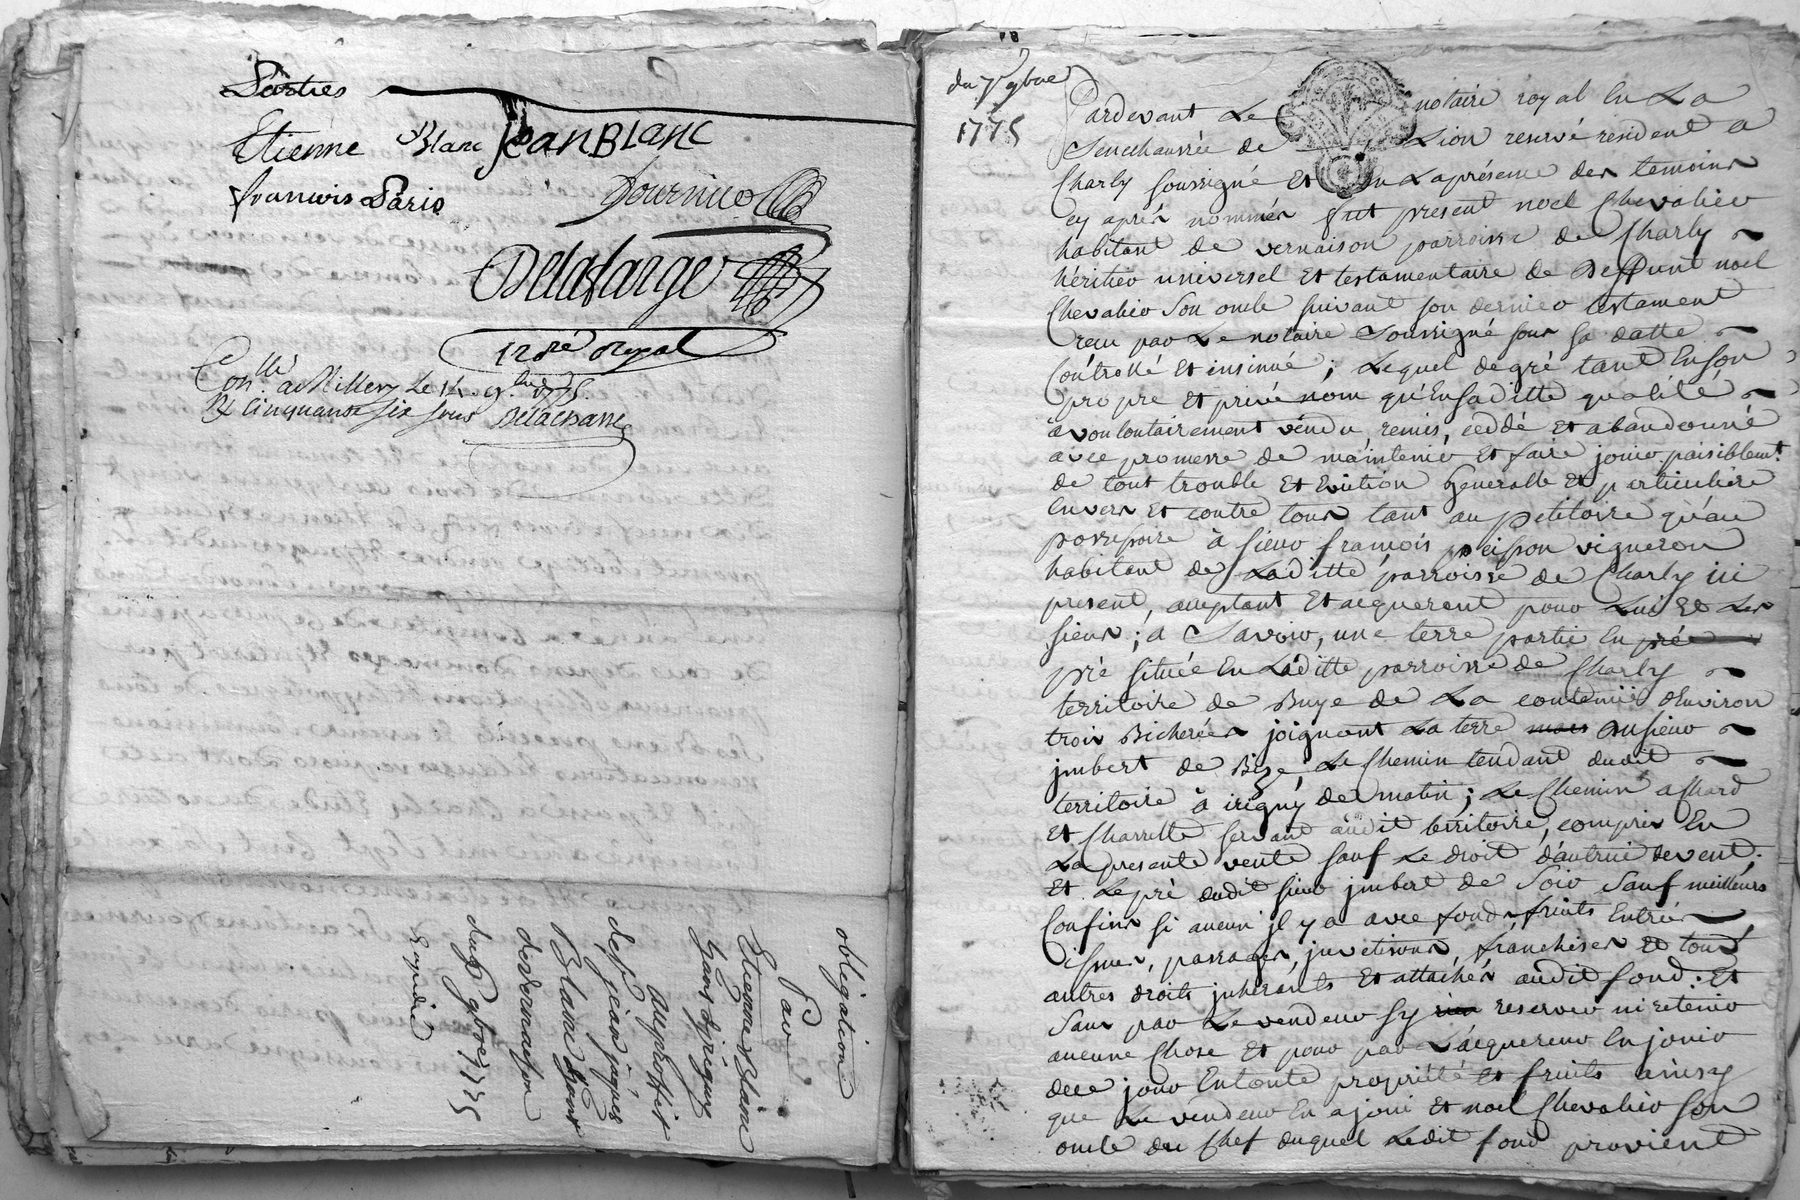 Parties
Etienne Blanc JEAN BLANC
francois Paris
fournieo
Delafarge
nre Royal
Conllé a Millery Le 14 9bre 1775
R cinquante six sous Delachasse
obligation
Par
Etienne Blanc
Gans d'irigny
Au proffit
de s.r jean jaques
Blanc
de vernaison
du 9bre 1775
Expedié
du 7e 9bre
1775
Pardevant Le notaire royal En La
Senechaussée de Lion reservé résident a
Charly soussigné Et En La présence des temoins
cy aprés nommés fut present noel Chevalieo
habitant de vernaison parroisse de Charly
héritieo universel Et testamentaire de Deffunt noel
Chevalieo Son oncle suivant son dernieo testament
recu pao Le notaire Soussigné sous sa datte
Controllé Et insinué ; Lequel de gré tant En son
propre Et privé nom qu'En sa ditte qualité
a voulontairement vendu, remis, ceddé Et abandonné
avec promesse de maintenio Et faire jouio paisiblemt.
de tout trouble Et Eviction generalle Et particuliére
Envers Et contre tous tant au petitoire qu'au
possessoire à sieuo françois peisson vigneron
habitant de La ditte parroisse de Charly ici
present, acceptant Et acquerant pouo Lui Et Les
siens ; a Savoio, une terre partie En prée
pré située En La ditte parroisse de Charly
territoire de Buye de La contenüe d'Environ
trois Bicherées joignant La terre mais du sieuo
jmbert de Bize, Le Chemin tendant dudit
territoire à irigny de matin ; Le Chemin a Chard
Et Charrette servant audit territoire, compris En
La presente vente sauf Le droit d'autrui de vent ;
Et Le pré dudit sieuo jmbert de Soio Sauf meilleurs
Confins si aucun jl y a avec fonds fruits Entrées
issues, passages, jnvetisons, franchises Et tous
autres droits jnhérants Et attachés audit fond : Et
Sans pao Le vendeuo sy rien reservero ni retenio
aucune Chose Et pouo pao L'acquereuo En jouio
dece jouo En toute propriété Et fruits ainsy
que Le vendeuo En a joui Et noel Chevalieo Son
oncle du Chef duquel Ledit fond provient